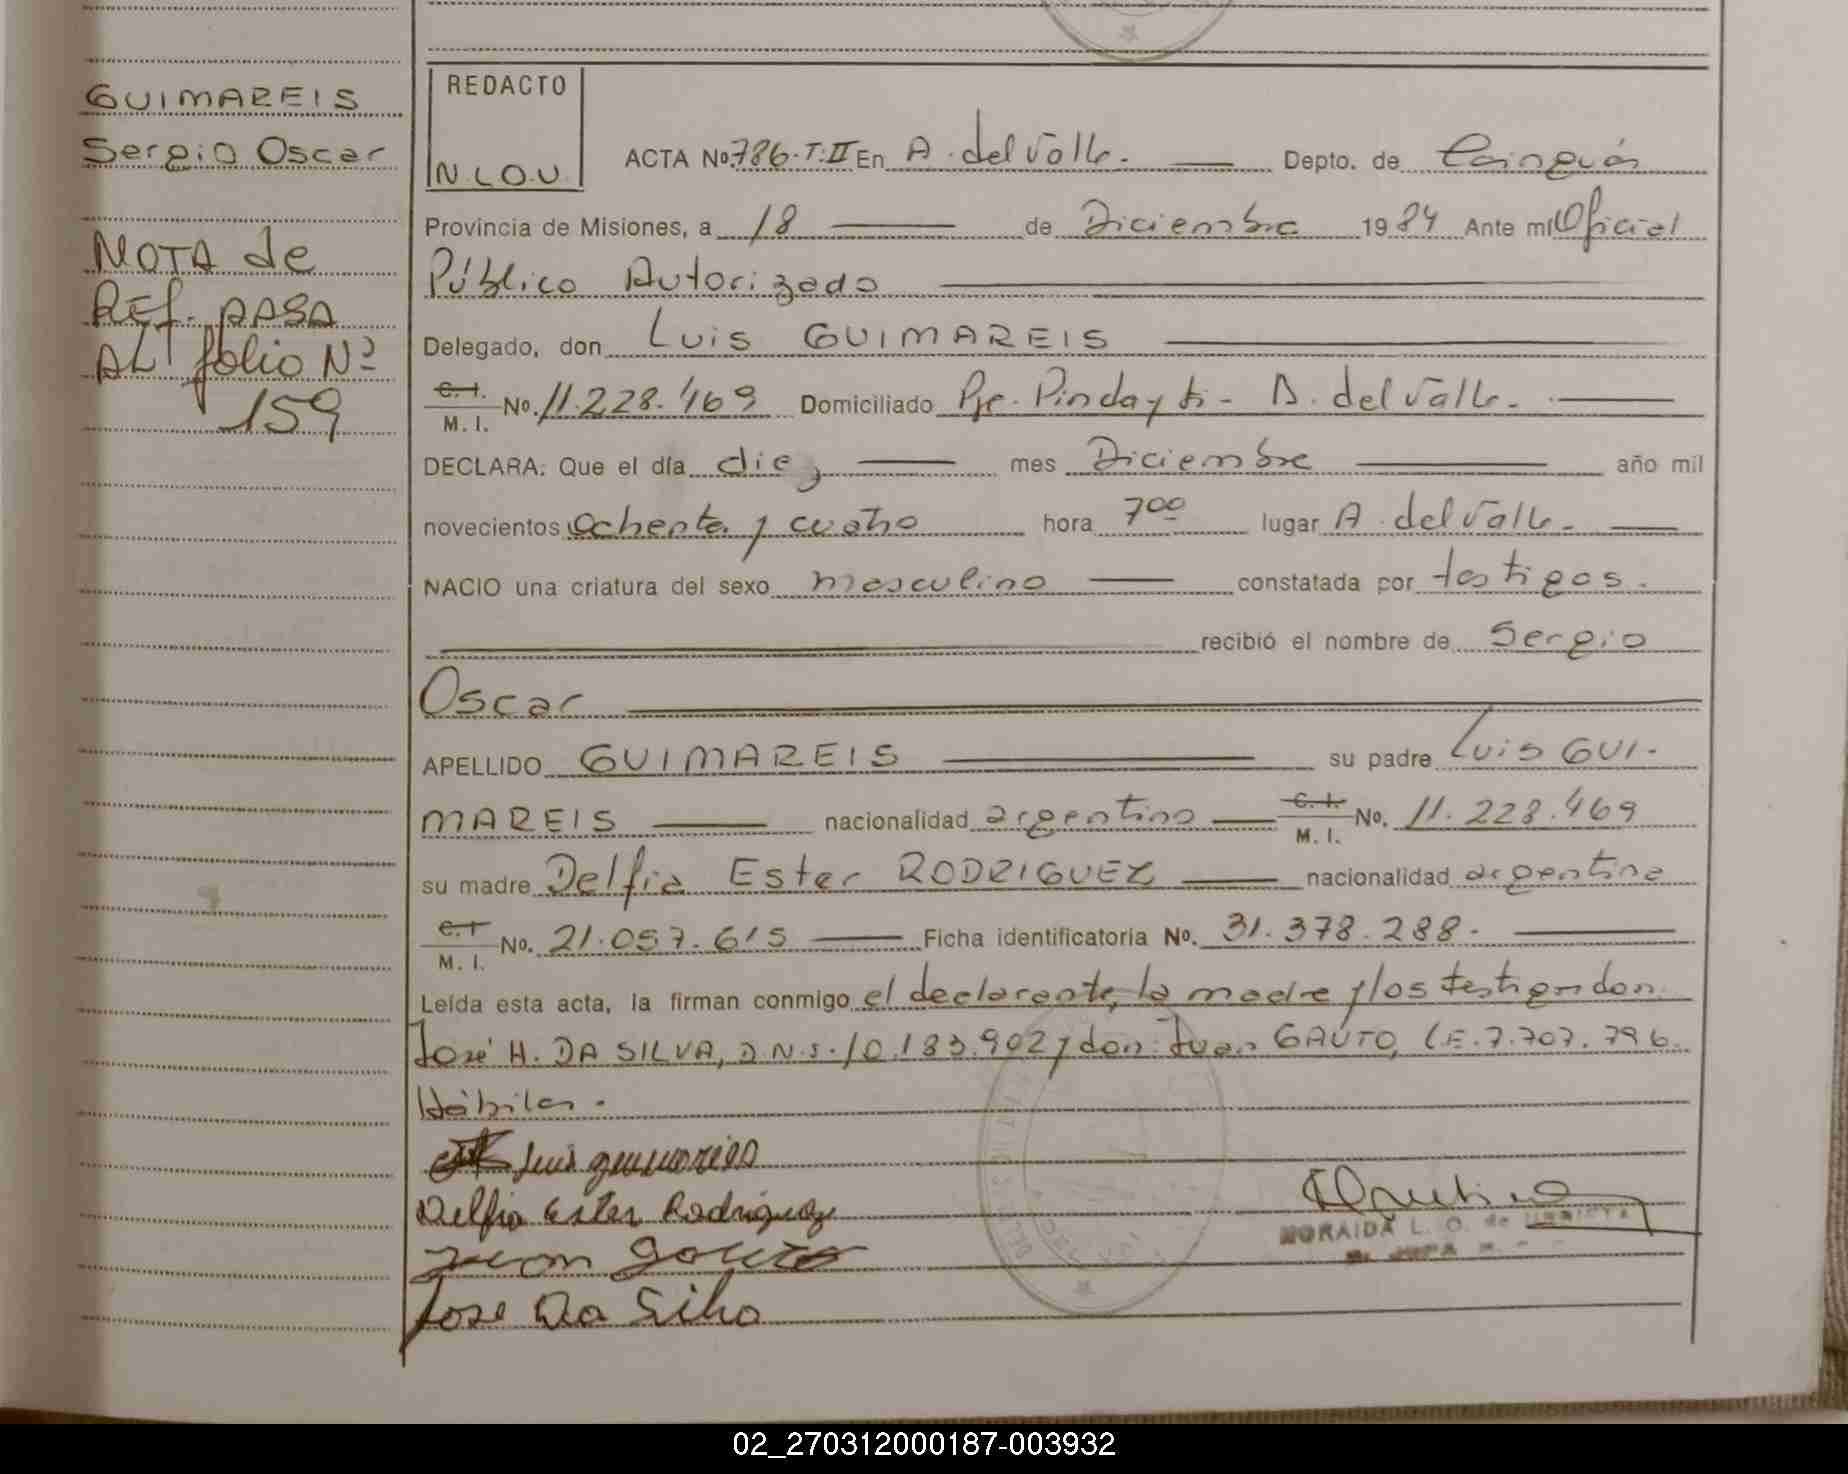 GUIMAREIS
Sergio Oscar
NOTA de
REf. PASA
AL folio Nº
159
REDACTO
N.L.O.U.
ACTA No. 786-T:II En A. del Valle. Depto. de Cainguás
Provincia de Misiones, a 18 de Diciembre 1984 Ante mí Oficial
Público Autorizado
Delegado, don Luis GUIMAREIS
C.I. M.I. No. 11.228.469 Domiciliado Pje. Pindayti - A. del Valle.
DECLARA: Que el día diez mes Diciembre año mil
novecientos ochenta y cuatro hora 7⁰⁰ lugar A. del Valle.
NACIO una criatura del sexo masculino constatada por testigos.
recibió el nombre de Sergio
Oscar
APELLIDO GUIMAREIS su padre Luis GUI-
MAREIS nacionalidad argentino C.I. M.I. No. 11.228.469
su madre Delfia Ester RODRIGUEZ nacionalidad argentina
C.I. M.I. No. 21.057.615 Ficha identificatoria No. 31.378.288.
Leída esta acta, la firman conmigo el declarante, la madre y los testigos don
José H. DA SILVA, D.N.I. 10.183.902 y don Juan GAUTO, L.E. 7.707.796.
Hábiles.
Luis guimareis
Delfia Ester Rodriguez
Juan Gauto
Jose Da Silva
NORAIDA L. O. de URRISTA
02_270312000187-003932